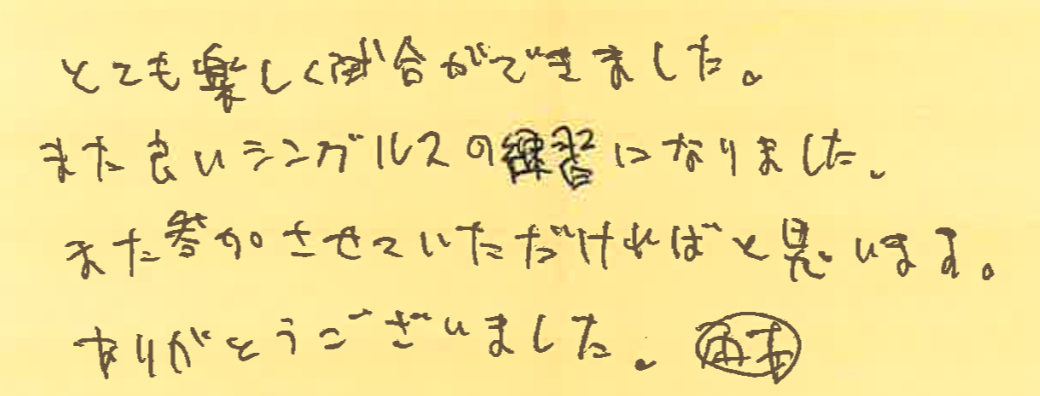 とても楽しく試合ができました。
また良いシングルスの練習になりました。
また参加させていただければと思います。
ありがとうございました。